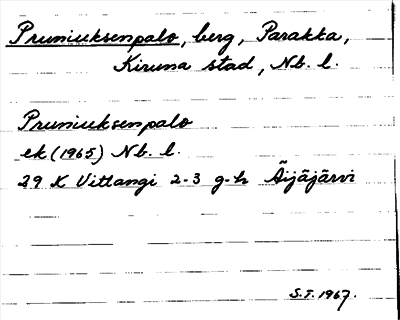 Pruniuksenpalo, berg, Parakka,
Kiruna stad, Nb. l.
Pruniuksenpalo
ek (1965) Nb. l.
29 K Vittangi 2-3 g-h Äijäjärvi
S.T. 1967.